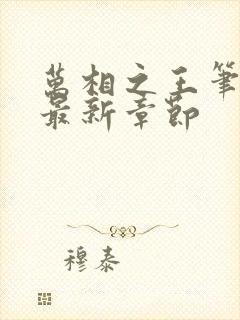 萬相之王筆
最新章節
穆泰